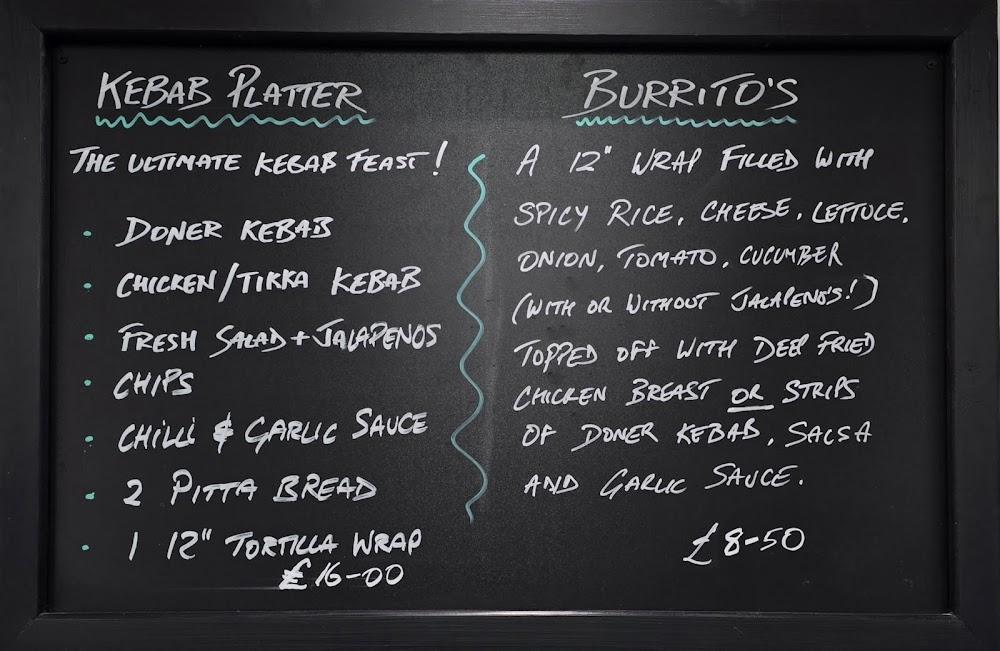 KEBAB PLATTER
THE ULTIMATE KEBAB FEAST!
• DONER KEBAB
• CHICKEN/TIKKA KEBAB
• FRESH SALAD + JALAPENOS
• CHIPS
• CHILLI & GARLIC SAUCE
• 2 PITTA BREAD
• 1 12" TORTILLA WRAP
£16-00
BURRITO'S
A 12" WRAP FILLED WITH
SPICY RICE, CHEESE, LETTUCE,
ONION, TOMATO, CUCUMBER
(WITH OR WITHOUT JALAPENO'S!)
TOPPED OFF WITH DEEP FRIED
CHICKEN BREAST OR STRIPS
OF DONER KEBAB, SALSA
AND GARLIC SAUCE.
£8-50